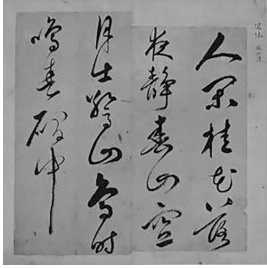 人閒桂花落
夜靜春山空
月出驚山鳥時
鳴春磵中